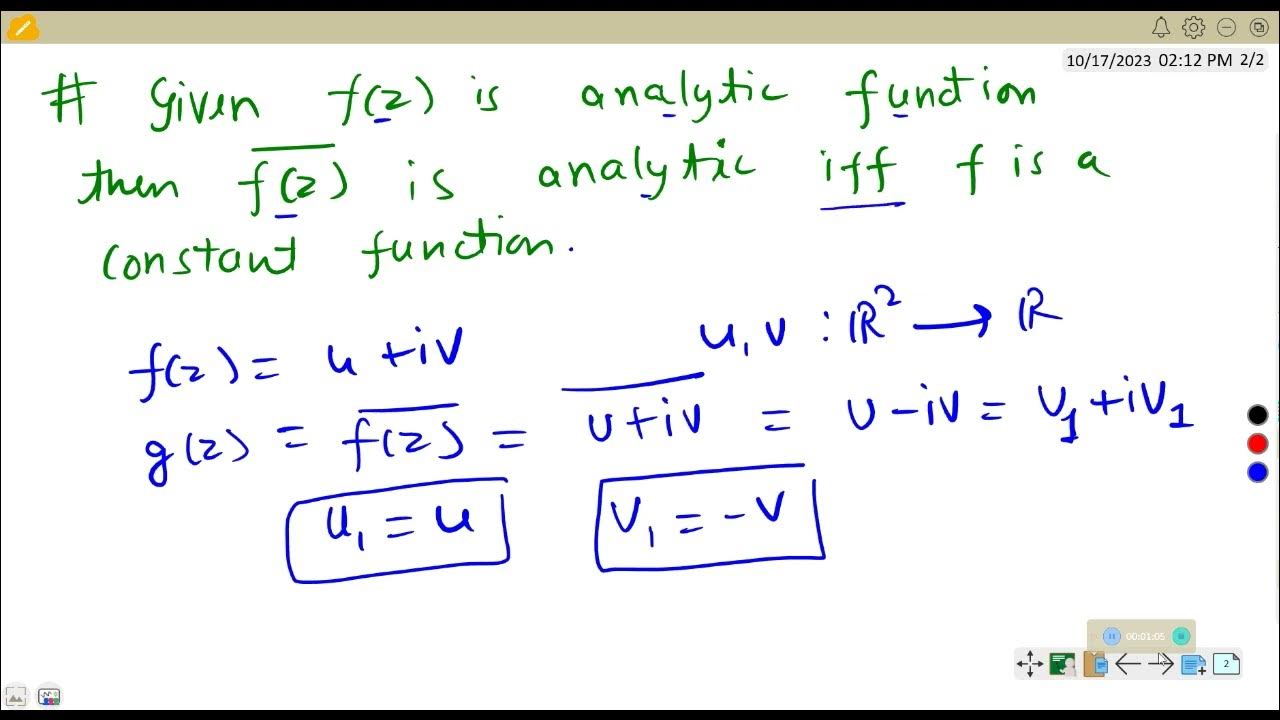 10/17/2023 02:12 PM 2/2
# Given f(z) is analytic function
then \overline{f(z)} is analytic iff f is a
constant function.
f(z) = u + iv    u, v : ℝ² ⟶ ℝ
g(z) = \overline{f(z)} = \overline{u+iv} = u - iv = u₁ + iv₁
u₁ = u    v₁ = -v
00:01:05
2